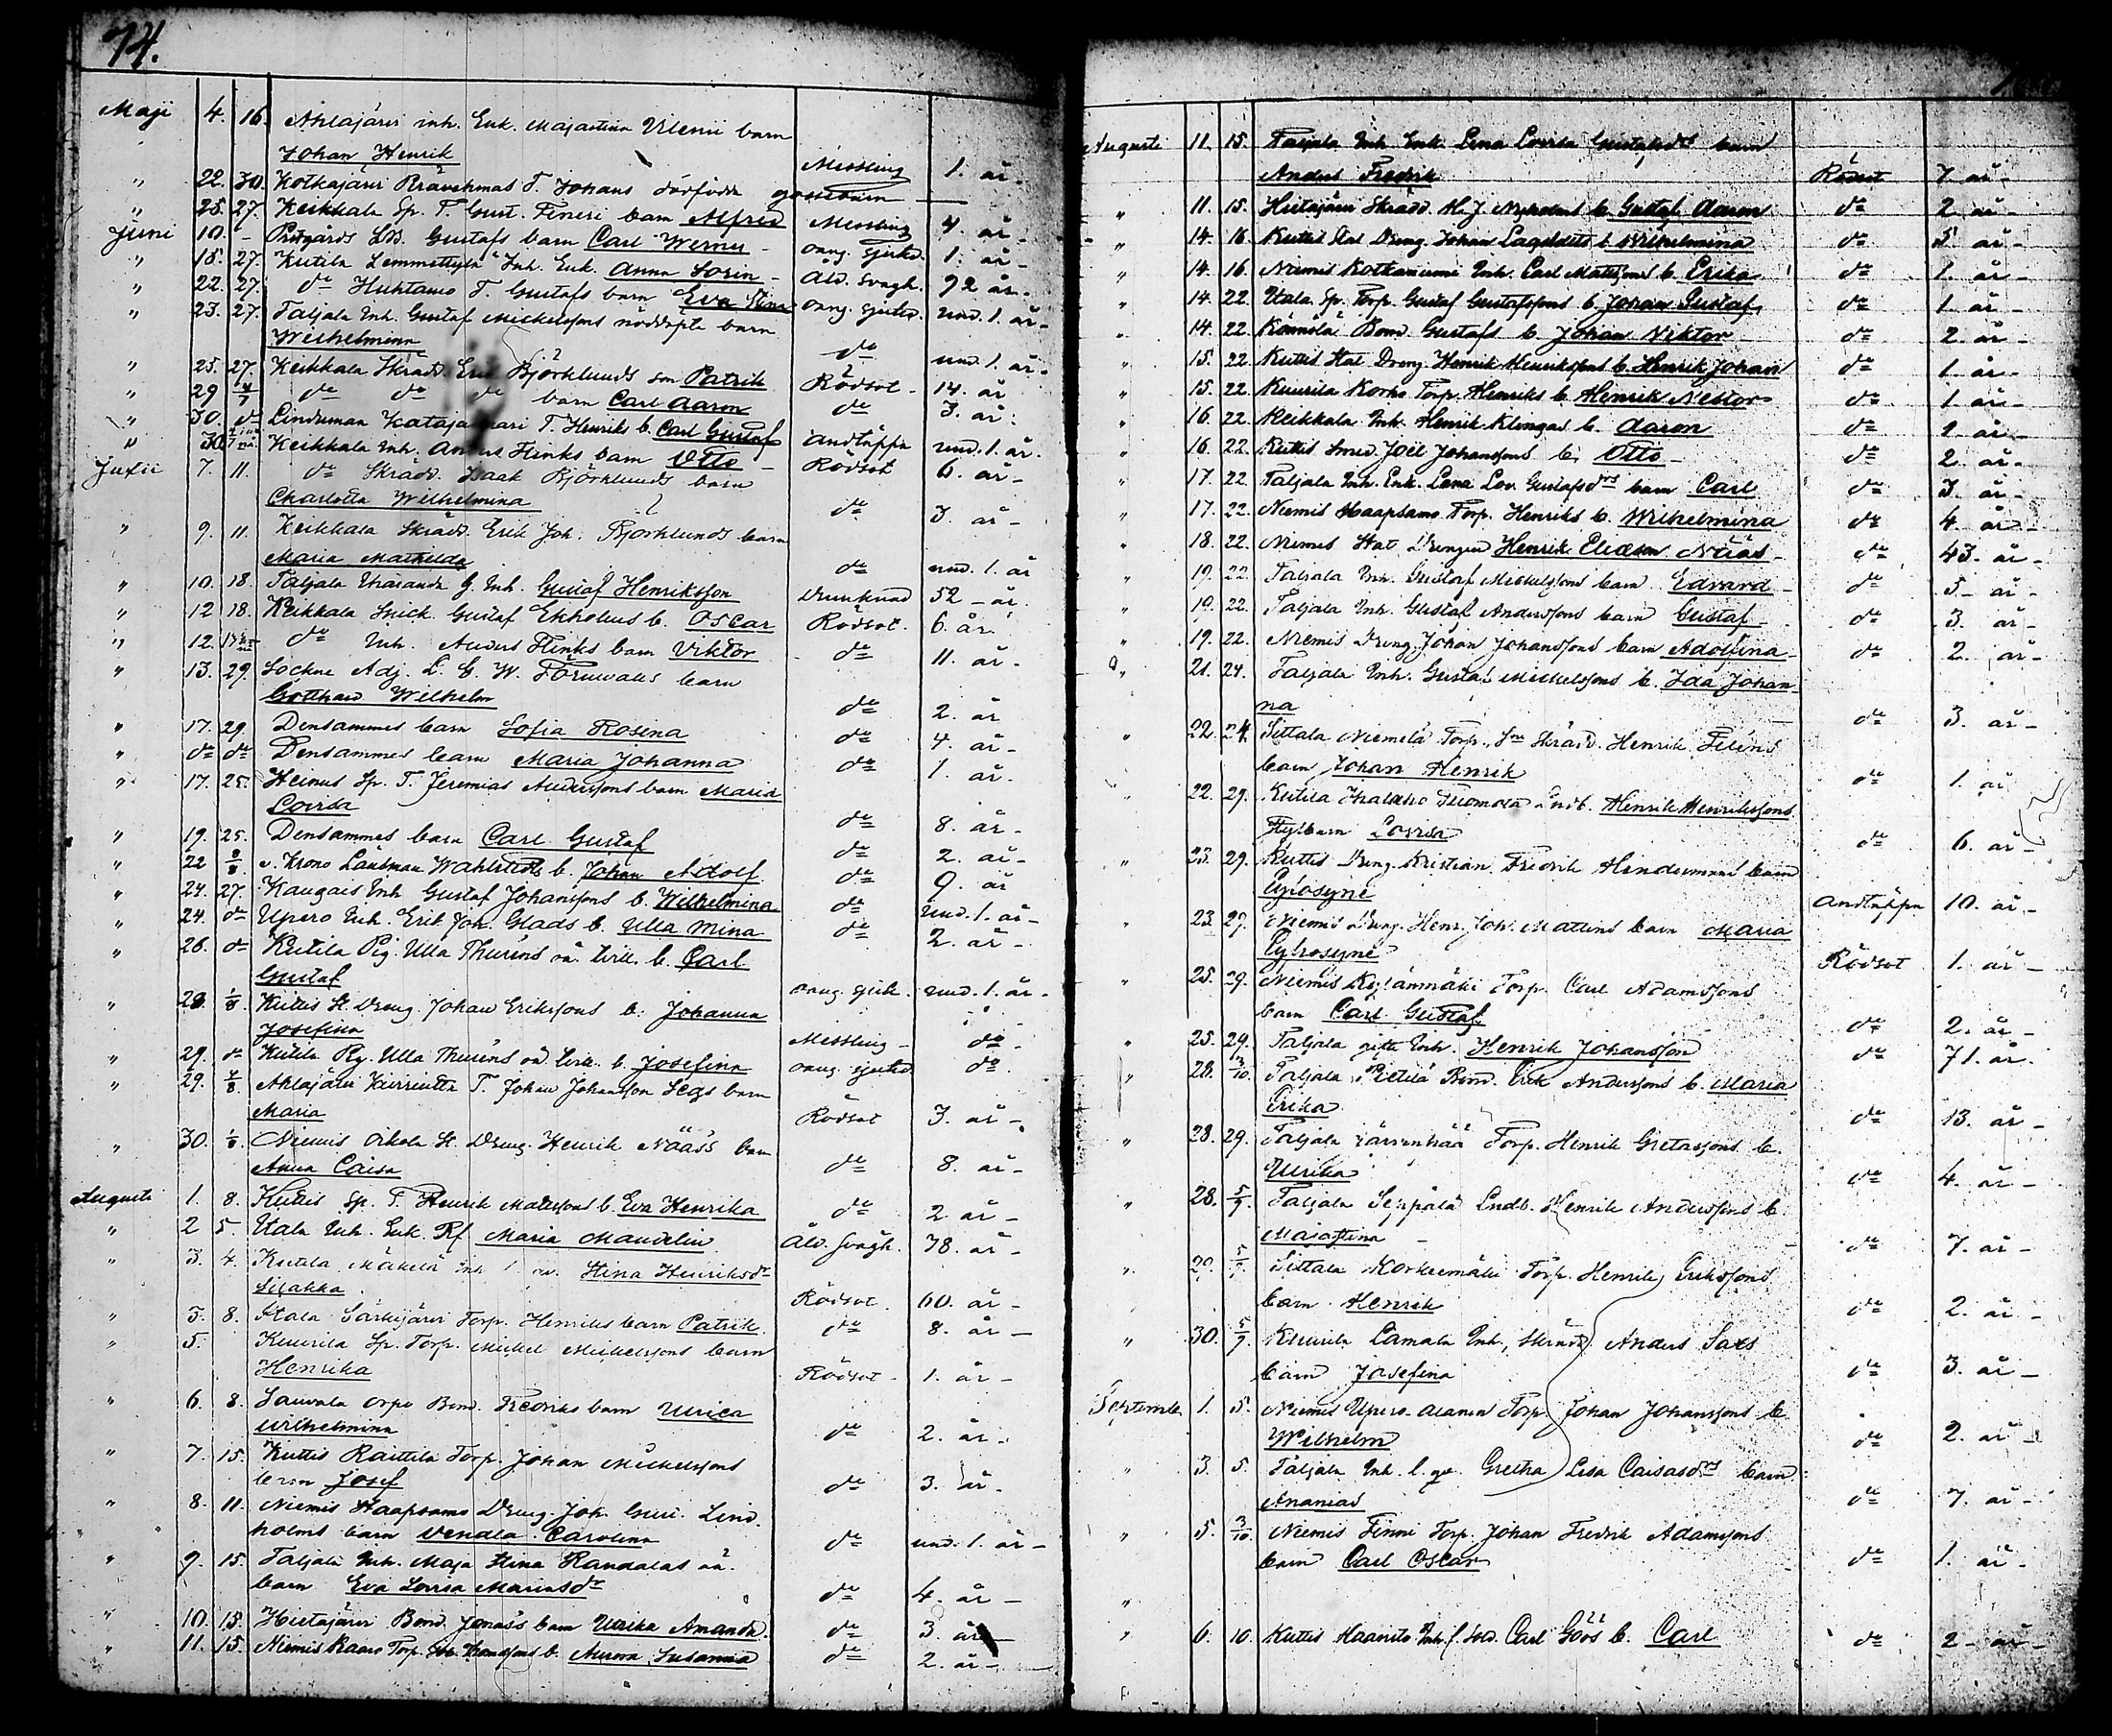 74.
Maji 4. 16. Ahlajärvi inh. Enk. Majastina Ulenii barn
Johan Henrik Messling 1. år.
" 22. 30. Kotkajärvi T. Johans dödfödda gossebarn
" 25. 27. Keikkala Sp. T. Gust. Feneri barn Alfred Messling 4. år
Juni 10. - Prstgårds Gustafs barn Carl Werner 1. år
" 18. 27. Kutila Lemmettylä Inh. Enk. Anna Sorin Ald. svagh. 92 år.
" 22. 27. do Huhtamo T. Gustafs barn Eva Stina und. 1. år
" 23. 27. Taljala Inh. Gustaf Mickelssons nöddöpta barn
Wilhelmina do und. 1. år.
" 25. 27. Keikkala Skrädd. Erik Björklunds son Patrik Rödsot 14. år
" 29 4/7 do do do barn Carl Aaron do 3. år.
" 30. do Linduman T. Henriks b. Carl Gustaf Andtäppa und. 1. år.
" 30. Keikkala Inh. Flinks barn Otto Rödsot 6. år
Julii 7. 11. do Skrädd. Isaak Björklunds barn
Charlotta Wilhelmina do 3. år
" 9. 11. Keikkala Skrädd. Erik Joh. Björklunds barn
Maria Mathilda do und. 1. år
" 10. 18. Taljala Inh. Gustaf Henriksson Drunknad 52 år.
" 12 18. Keikkala Gustaf Ekholms b. Oscar Rödsot 6. år
" 12. do Inh. Anders Flinks barn Viktor do 11. år.
" 13. 29. Sockne Adj. L. G. W. Forswalls barn
Gotthard Wilhelm do 2. år
" 17. 29. Densammes barn Sofia Rosina do 4. år
" do do Densammes barn Maria Johanna do 1. år.
" 17. 25. Heinus Sp. T. Jeremias Anderssons barn Maria
Lovisa do 8. år
" 19. 25. Densammes barn Carl Gustaf do 2. år
" 22 v. Krono Länsman Wahlstedts b. Johan Adolf do 9. år
" 24. 27. Kangais Inh. Gustaf Johanssons b. Wilhelmina do und. 1. år
" 24. do Upero Inh. Erik Joh. Glads b. Ulla Mina do 2. år
" 26. do Kutila Pig. Ulla Thuréns oä. b. Carl
Gustaf und. 1. år.
" 28. 1/8 Kuttis St. Dreng. Johan Erikssons b. Johanna
Josefina Messling do
" 29. do Kutila Pig. Ulla Thuréns oä b. Josefina do
" 29. 4/8 Ahlajärvi T. Johan Johansson Segs barn
Maria Rödsot 3. år
" 30. 1/8 Niemis St. Dreng. Henrik Nääs's barn
Anna Caisa do 8. år
Augusti 1. 8. Kuttis Sp. T. Henrik Matssons b. Eva Henrika do 2 år
" 2 5. Utala Inh. Enk. Rf Maria Mandelin Ald. svagh. 78. år
" 3. 4. Kutila Mäkelä Inh. Stina Henriksdr
Silakka Rödsot 60. år
" 5. 8. Utala Särkijärvi Torp. Henriks barn Patrik do 8. år
" 5. Kuurila Sp. Torp. Mickel Mickelssons barn
Henrika Rödsot 1. år
" 6. 8. Sauvala Orpo Bond. Fredriks barn Ulrica
Wilhelmina do 2. år
" 7. 15. Kuttis Raittila Torp. Johan Mickelssons
barn Josef do 3. år
" 8. 11. Niemis Haapsamo Dreng. Joh. Gust. Lind-
holms barn Vendla Carolina do und. 1. år
" 9. 15. Taljala Inh. Maja Stina Randalas oä.
barn Eva Lovisa Mariasdr do 4. år
" 10. 15. Hietajärvi Bond. Jonas's barn Ulrika Amanda do 3. år
" 11. 15. Niemis Kaaro Torp. b. Aurora Susanna do 2. år
Augusti 11. 15. Taljala Inh. Enk. Lena Lovisa Gustafsdrs barn
Anders Fredrik Rödsot 7. år
" 11. 15. Hietajärvi Skrädd. M. J. Nyholms b. Gustaf Aaron do 2. år
" 14. 16 Kuttis Stat Dreng. Johan Lagstedts b. Wilhelmina do 5 år
" 14. 16. Niemis Kotkaniemi Inh. Carl Matssons b. Erika do 1. år
" 14. 22. Utala Sp. Torp. Gustaf Gustafssons b. Johan Gustaf do 1. år
" 14. 22. Kännölä Bond. Gustafs b. Johan Viktor do 2. år
" 15. 22. Kuttis Stat Dreng. Henrik Henrikssons b. Henrik Johan do 1. år
" 15. 22. Kuurila Korho Torp. Henriks b. Henrik Nestor do 1. år
" 16. 22. Keikkala Inh. Henrik Klingas b. Aaron do 1. år
" 16. 22. Kuttis Smed. Joël Johanssons b. Otto do 2. år
" 17. 22. Taljala Inh. Enk. Lena Lov. Gustafsdrs barn Carl do 3. år
" 17. 22. Niemis Haapsamo Torp. Henriks b. Wilhelmina do 4. år
" 18. 22. Niemis Stat Drengen Henrik Eliasson Nääs do 43. år
" 19. 22. Taljala Inh. Gustaf Mickelssons barn Edvard do 5. år
" 19. 22. Taljala Inh. Gustaf Anderssons barn Gustaf do 3. år
" 19. 22. Niemis Dreng. Johan Johanssons barn Adolfina do 2. år
" 21. 24. Taljala Inh. Gustaf Mickelssons b. Ida Johan-
na do 3. år
" 22. 24. Sittala Niemelä Torp. Skrädd. Henrik Feléns
barn Johan Henrik do 1. år
" 22. 29. Kutila Tuomola Lndb. Henrik Henrikssons
barn Lovisa do 6. år
" 23. 29. Kuttis Dreng. Kristian Fredrik Hindermans barn
Eyfrosyne Andtäppa 10. år
" 23. 29. Niemis Dreng. Henr. Joh. Mattins barn Maria
Eyfrosyne Rödsot 1. år
" 25. 29. Niemis Torp. Carl Adamssons
barn Carl Gustaf do 2. år
" 25. 29. Taljala gifte Inh. Henrik Johansson do 71. år.
" 28. 3/10. Taljala Pietilä Bond. Erik Anderssons b. Maria
Erika do 13. år
" 28. 29. Taljala Torp. Henrik Gretassons b.
Ulrika do 4. år
" 28. 5/9. Taljala Seppälä Lndb. Henrik Anderssons b.
Majastina do 7. år
" 29. 5/9. Sittala Korkeemäki Torp. Henrik Erikssons
barn Henrik do 2. år
" 30. 5/9. Kuurila Lamala Inh. Skrädd. Anders Saxs
barn Josefina do 3. år
September 1. 5. Niemis Upero-Alanen Torp. Johan Johanssons b.
Wilhelm do 2. år
" 3. 5. Taljala Inh. l. qv. Gretha Lisa Caisasdrs barn
Ananias do 7. år
" 5. 3/10. Niemis Finni Torp. Johan Fredrik Adamssons
barn Carl Oscar do 1. år
"
" 6. 10. Kuttis Haavisto Inh. f. Sold. Carl Göös b. Carl do 2 år